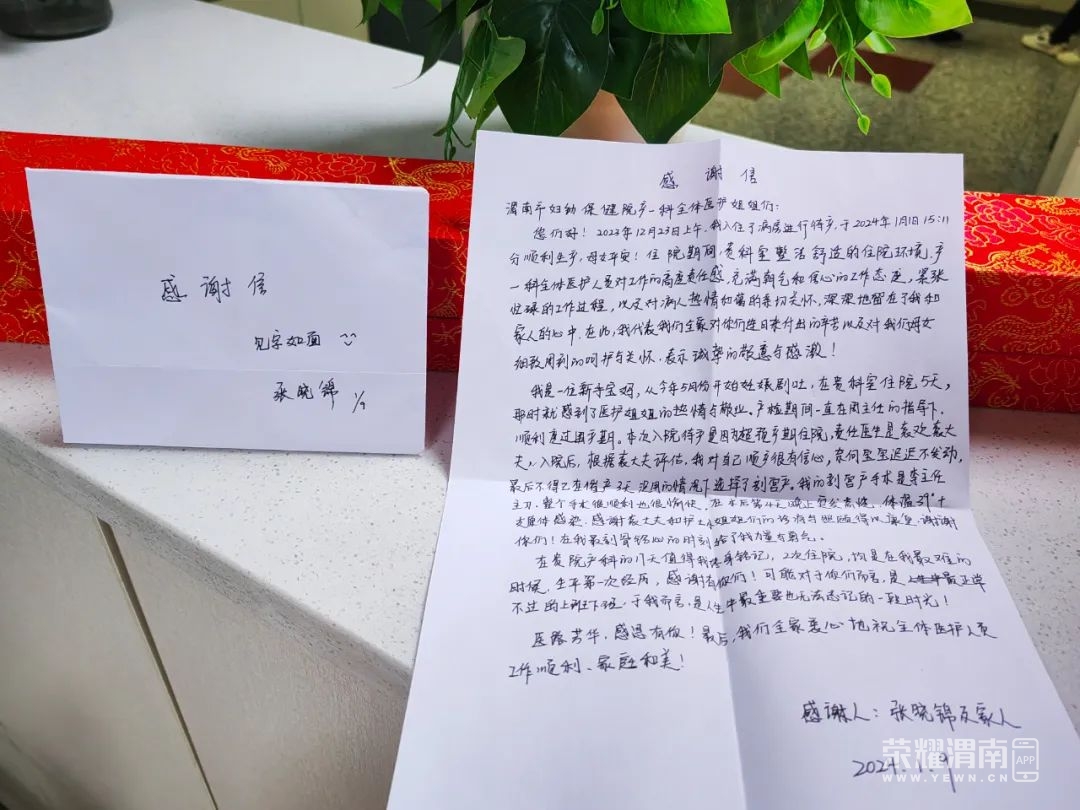 感谢信
见字如面
张晓锦 1/9
感谢信
渭南市妇幼保健院产一科全体医护姐姐们：
您们好！2023年12月23日上午，我入住了病房进行待产，于2024年1月1日15:11
分顺利生产，母女平安！住院期间，贵科室整洁舒适的住院环境，产
一科全体医护人员对工作的高度责任感，充满朝气和信心的工作态度，紧张
忙碌的工作过程，以及对病人热情和蔼的亲切关怀，深深地留在了我和
家人的心中，在此，我代表我们全家对你们连日来付出的辛苦以及对我们母女
细致周到的呵护与关怀，表示诚挚的敬意与感激！
我是一位新手宝妈，从今年5月份开始妊娠剧吐，在贵科室住院5天，
那时就感到了医护姐姐的热情与敬业。产检期间一直在周主任的指导下，
顺利度过围产期。本次入院待产是因为超预产期住院，责任医生是袁欢袁大
夫，入院后，根据袁大夫评估，我对自己顺产很有信心，奈何宝宝迟迟不发动，
最后不得已在催产3天没用的情况下选择了剖宫产。我的剖宫产手术是李主任
主刀，整个手术很顺利也很愉快，在术后第4天晚上突发高烧，体温39°+
支原体感染，感谢袁大夫和护士姐姐们的治疗与照顾得以康复，谢谢
你们！在我最刻骨铭心的时刻给了我力量与勇气。
在贵院产科的17天值得我终身铭记，2次住院，均是在我最难的
时候，生平第一次经历，感谢有你们！可能对于你们而言，是最正常
不过的上班下班，于我而言，是人生中最重要也无法忘记的一段时光！
医路芳华，感恩有你！最后，我们全家衷心地祝全体医护人员
工作顺利、家庭和美！
感谢人：张晓锦及家人
2024.1.9
荣耀渭南 APP
WWW.YEWN.CN